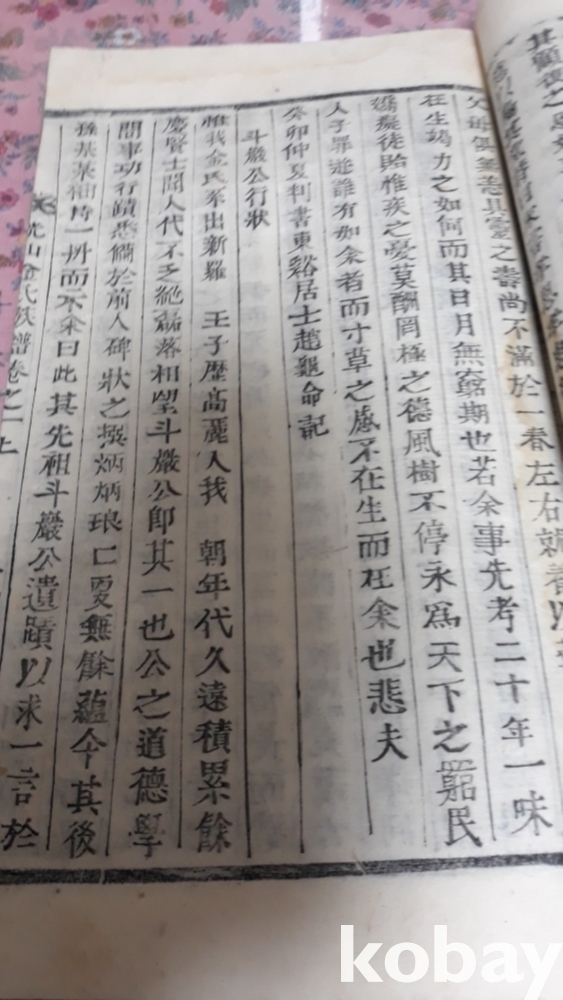 其顧復之恩
父母俱無恙具慶之壽尚不滿於一春左右就者以
在生竭力之如何而其日月無窮期也若余事先考二十年一味
癡徒貽惟疾之憂莫酬罔極之德風樹不停永爲天下之罪民
人子罪逆誰有如余者而寸草之感不在生而在余也悲夫
癸卯仲夏判書東谿居士趙龜命記
斗巖公行狀
惟我金氏系出新羅 王子歷高麗入我 朝年代久遠積累餘
慶賢士聞人代不乏絕磊落相望斗巖公卽其一也公之道德學
問事功行蹟悉備於前人碑狀之撰炳炳琅亡更無餘蘊今其後
孫某某袖時一冊而示余曰此其先祖斗巖公遺蹟以求一言於
光山金氏族譜卷之一上
kobay